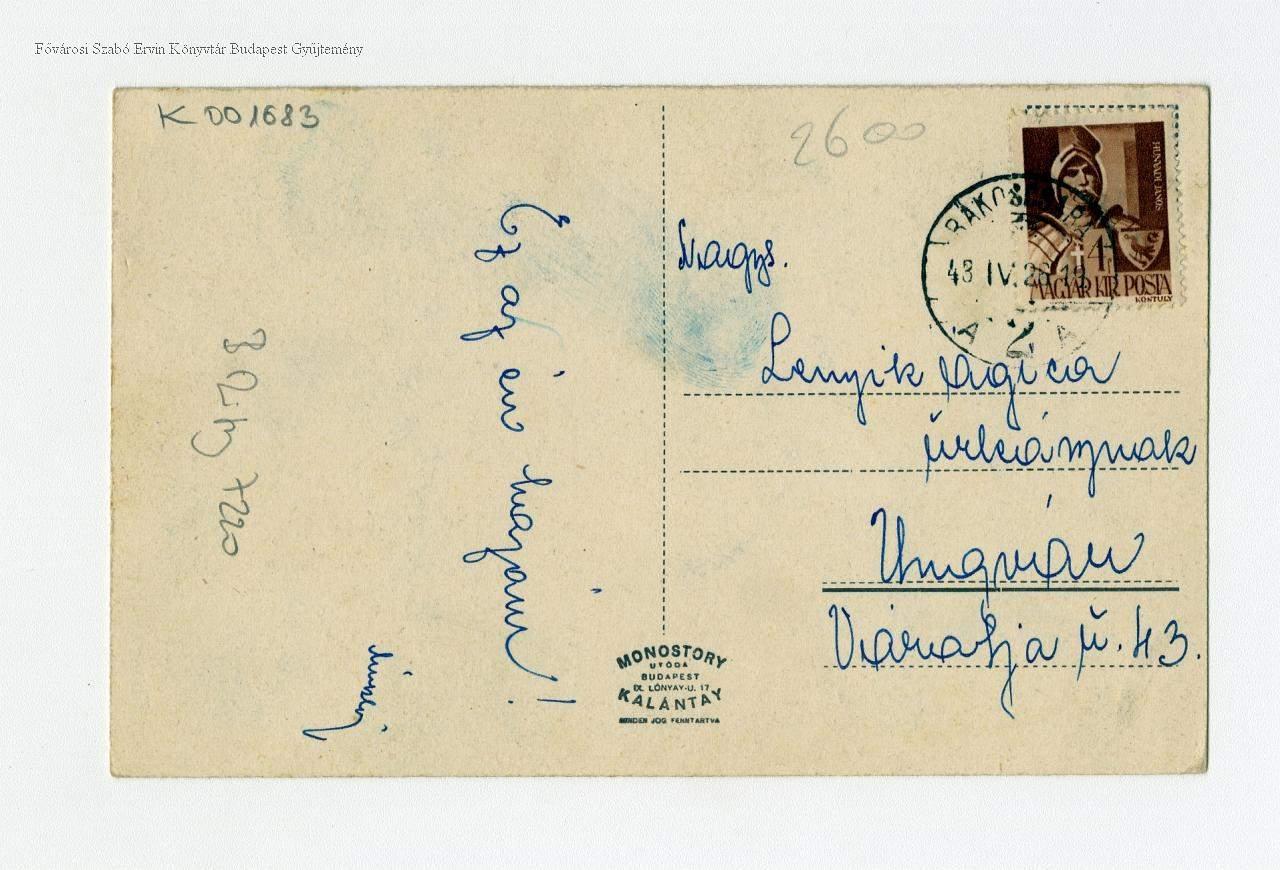 Fővárosi Szabó Ervin Könyvtár Budapest Gyűjtemény
K 001683
2600
HUNYADI JÁNOS
4f
MAGYAR KIR. POSTA
KONTULY
43 IV. 28 18
A 2 A
Nagys.
Lenyik Ágica
úrleánynak
Ungvár
Váralja u. 43.
Ez az én hazám!
MONOSTORY
UTÓDA
BUDAPEST
IX. LÓNYAY-U. 17
KALÁNTAY
MINDEN JOG FENNTARTVA